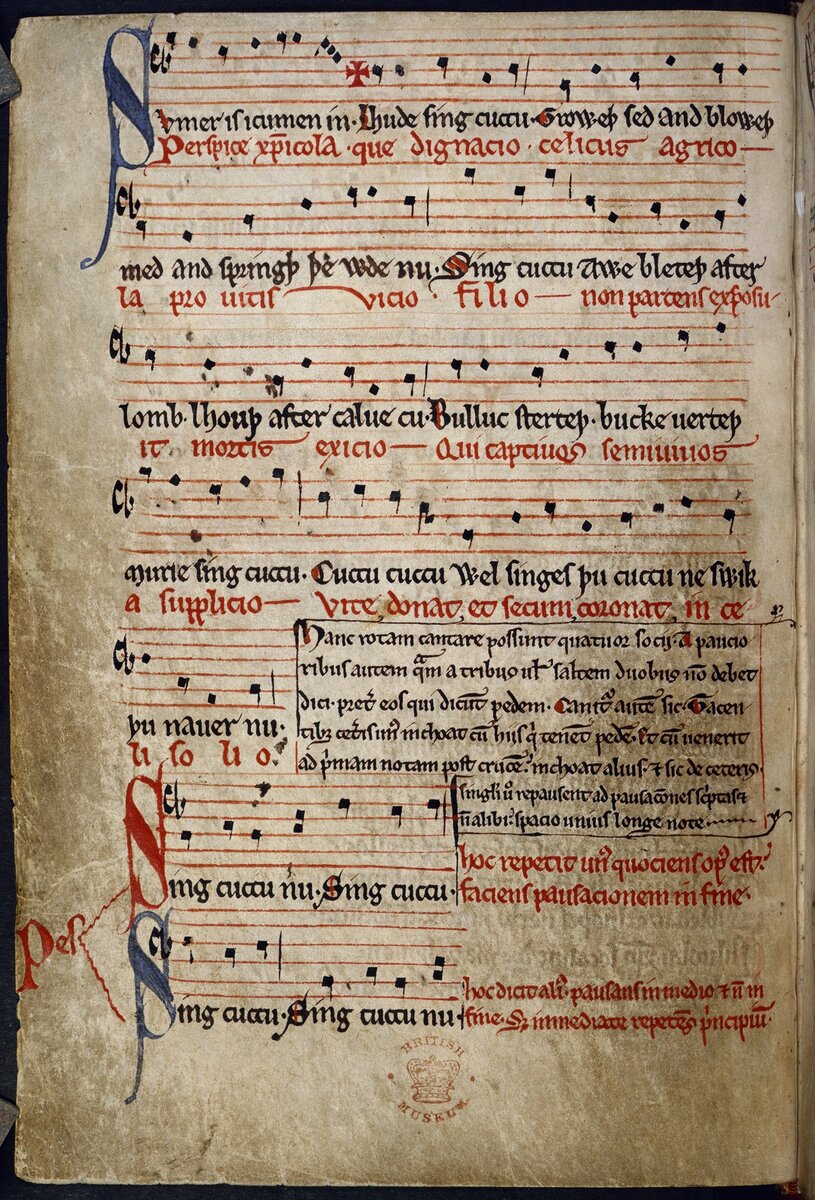 Sumer is icumen in. Lhude sing cuccu. Groweþ sed and bloweþ
Perspice xp̄icola que dignacio celicus agrico
med and springþ þe wde nu. Sing cuccu Awe bleteþ after
la pro uitis vicio filio non parcens exposu
lomb. lhouþ after calue cu. Bulluc sterteþ. bucke uerteþ
it mortis exicio Qui captiuos semiuiuos
murie sing cuccu. Cuccu cuccu Wel singes þu cuccu ne swik
a supplicio Vite donat et secum coronat in ce
þu nauer nu.
li so li o.
Hanc rotam cantare possunt quatuor socij. A paucio
ribus autem q̄m a tribus uł saltem duobus nō debet
dici. pret̉ eos qui dicūt pedem. Canit᷑ autē sic. Tacen
tibꝫ cet̉is un᷒ inchoat cū hiis q̇ tenēt pedē. Et cū uenerit
ad p̉mam notam post crucē. inchoat alius. ⁊ sic de ceteris.
singĺi ủ repausent ad pausacōnes sc̉ptas ⁊
n̄ alibi. spacio unius longe note
Sing cuccu nu. Sing cuccu.
hoc repetit un᷒ quociens op᷒ est.
faciens pausacionem in fine.
Pes
Sing cuccu. Sing cuccu nu
hoc dicit ali᷒ pausans in medio ⁊ n̄ in
fine. Sꝫ inmediate repetēs p̉ncipiū.
BRITISH
MUSEUM